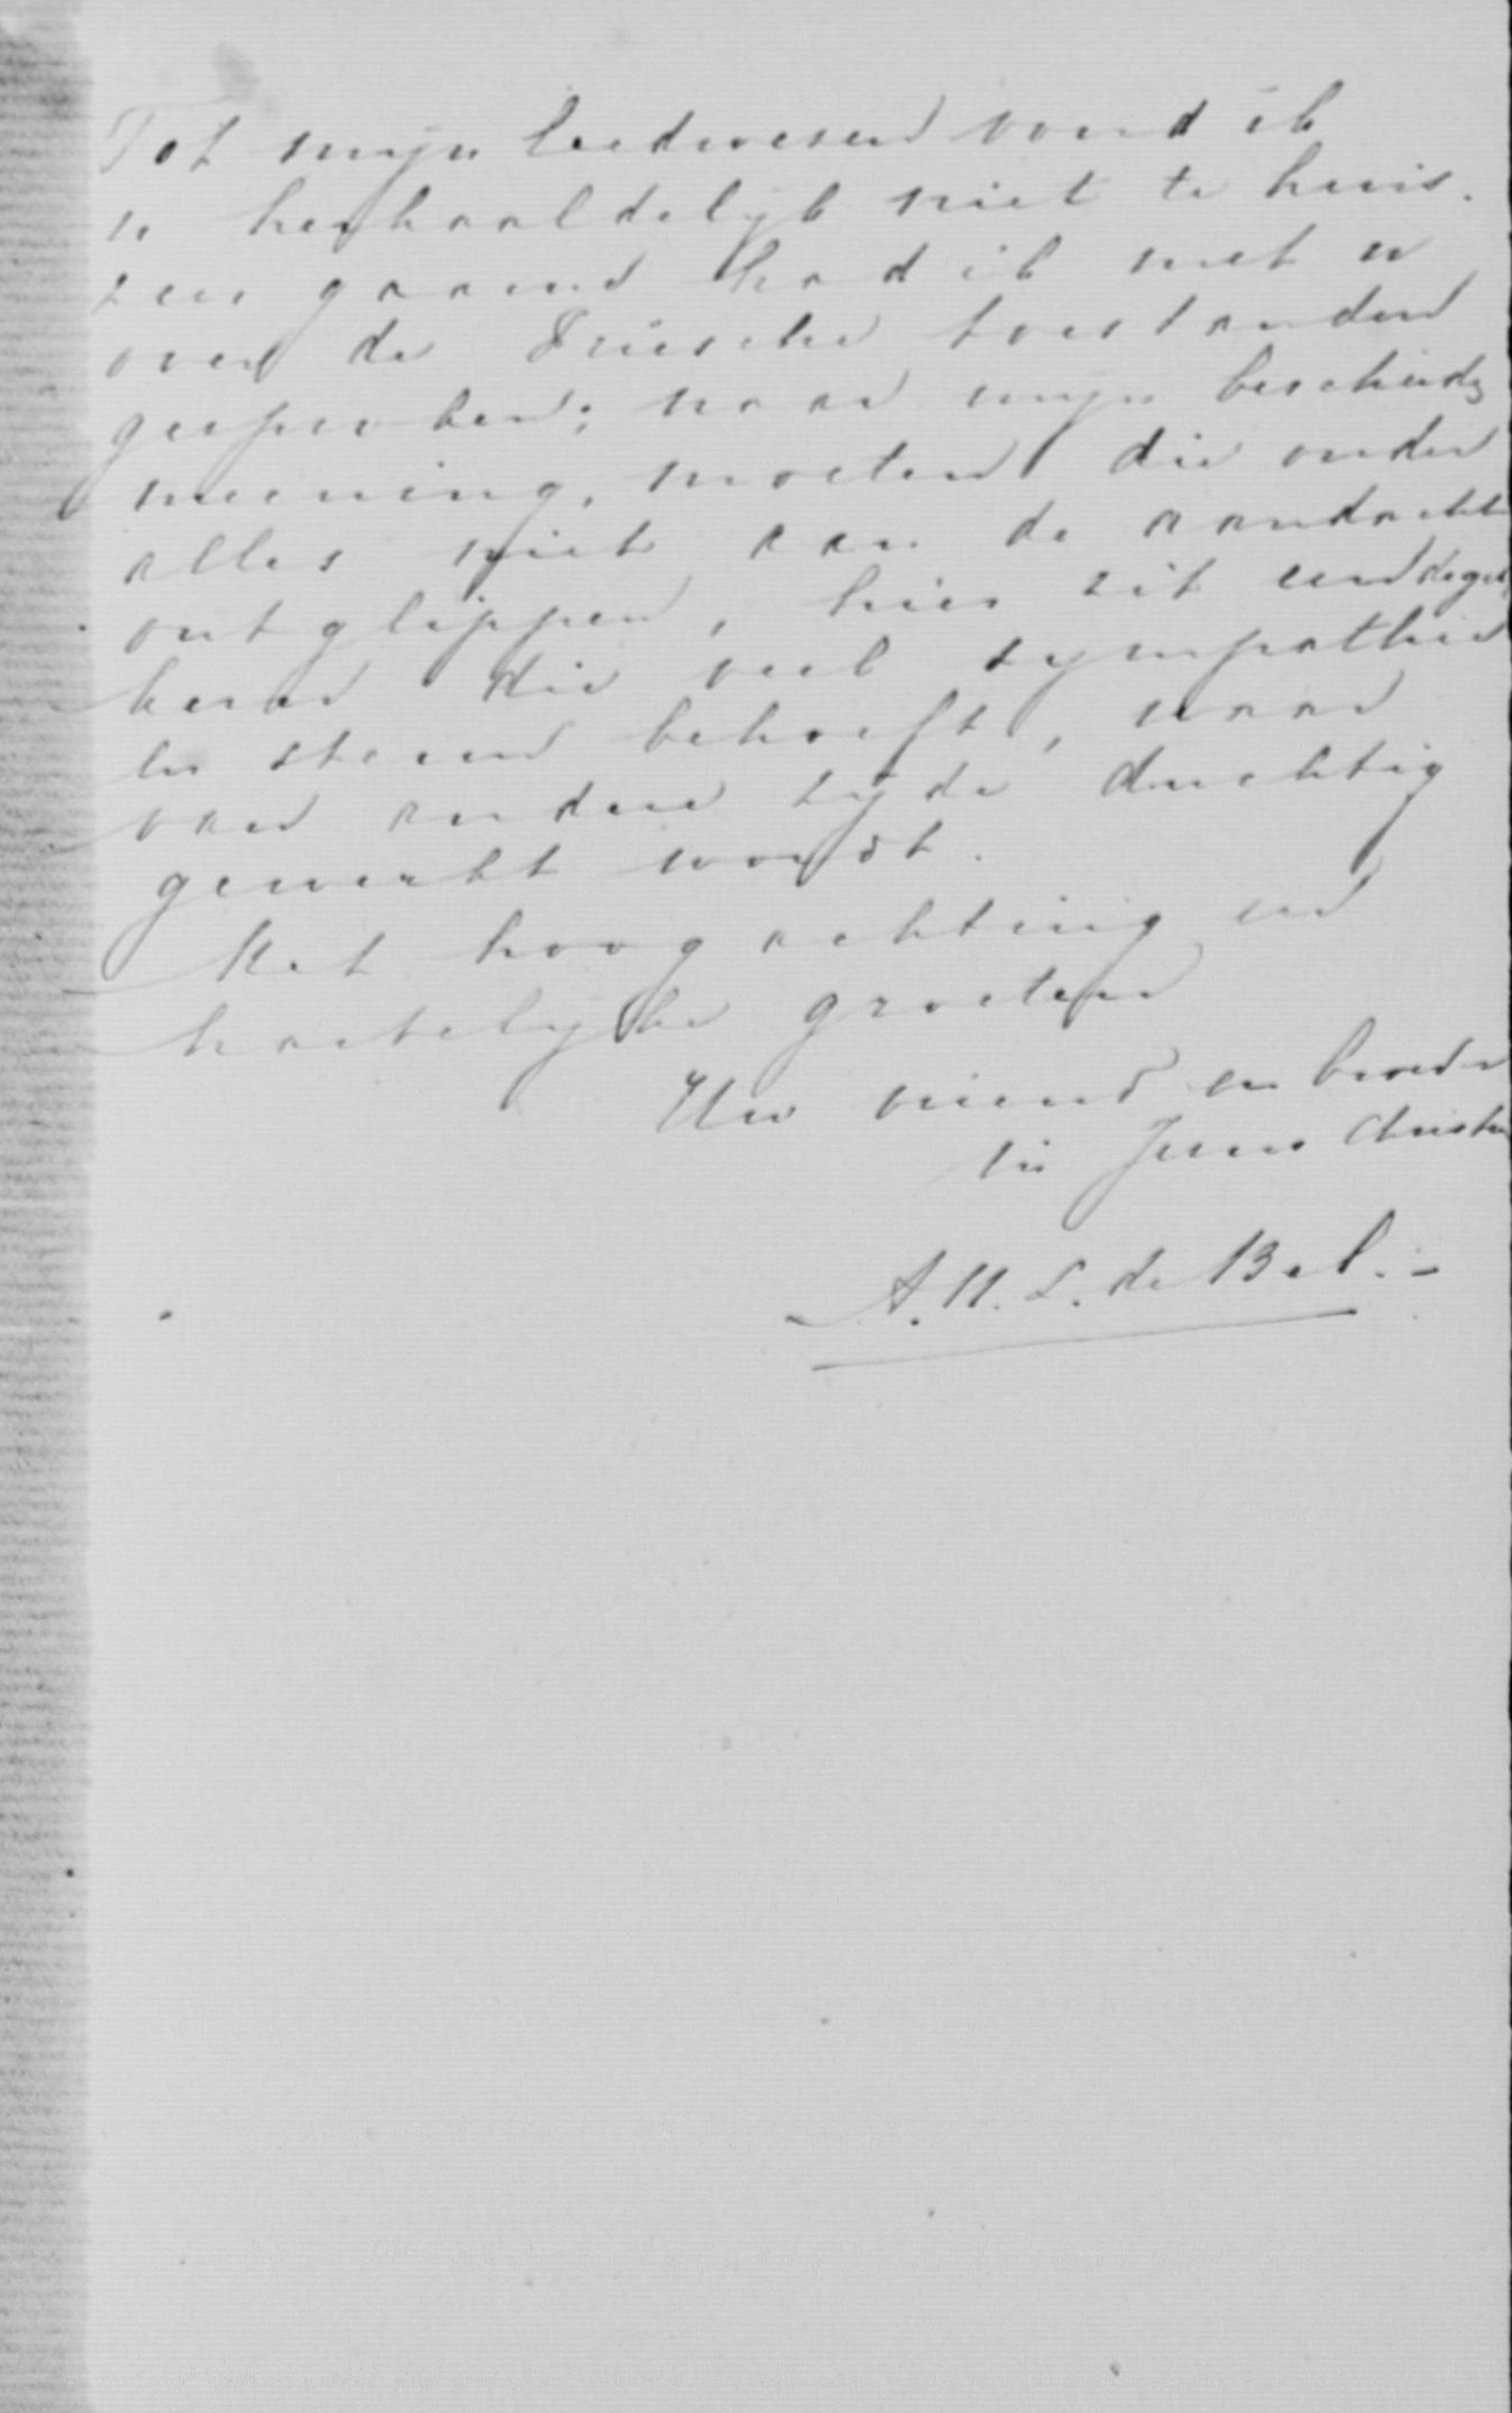 Tot mijn leedwezen vond ik
u herhaaldelijk niet te huis.
zeer gaarne had ik met u
over de Friesche toestanden
gesproken; naar mijn bescheiden
meening, moeten die onder
alles niet aan de aandacht
ontglippen, hier zit een degel.
kern die veel sympathie
en steun behoeft, waar
van andere zijde duchtig
gewerkt wordt.
Met hoogachting en
hartelijke groeten
Uw vriend en broeder
in Jezus Christus
A. H. L. de Bel.-